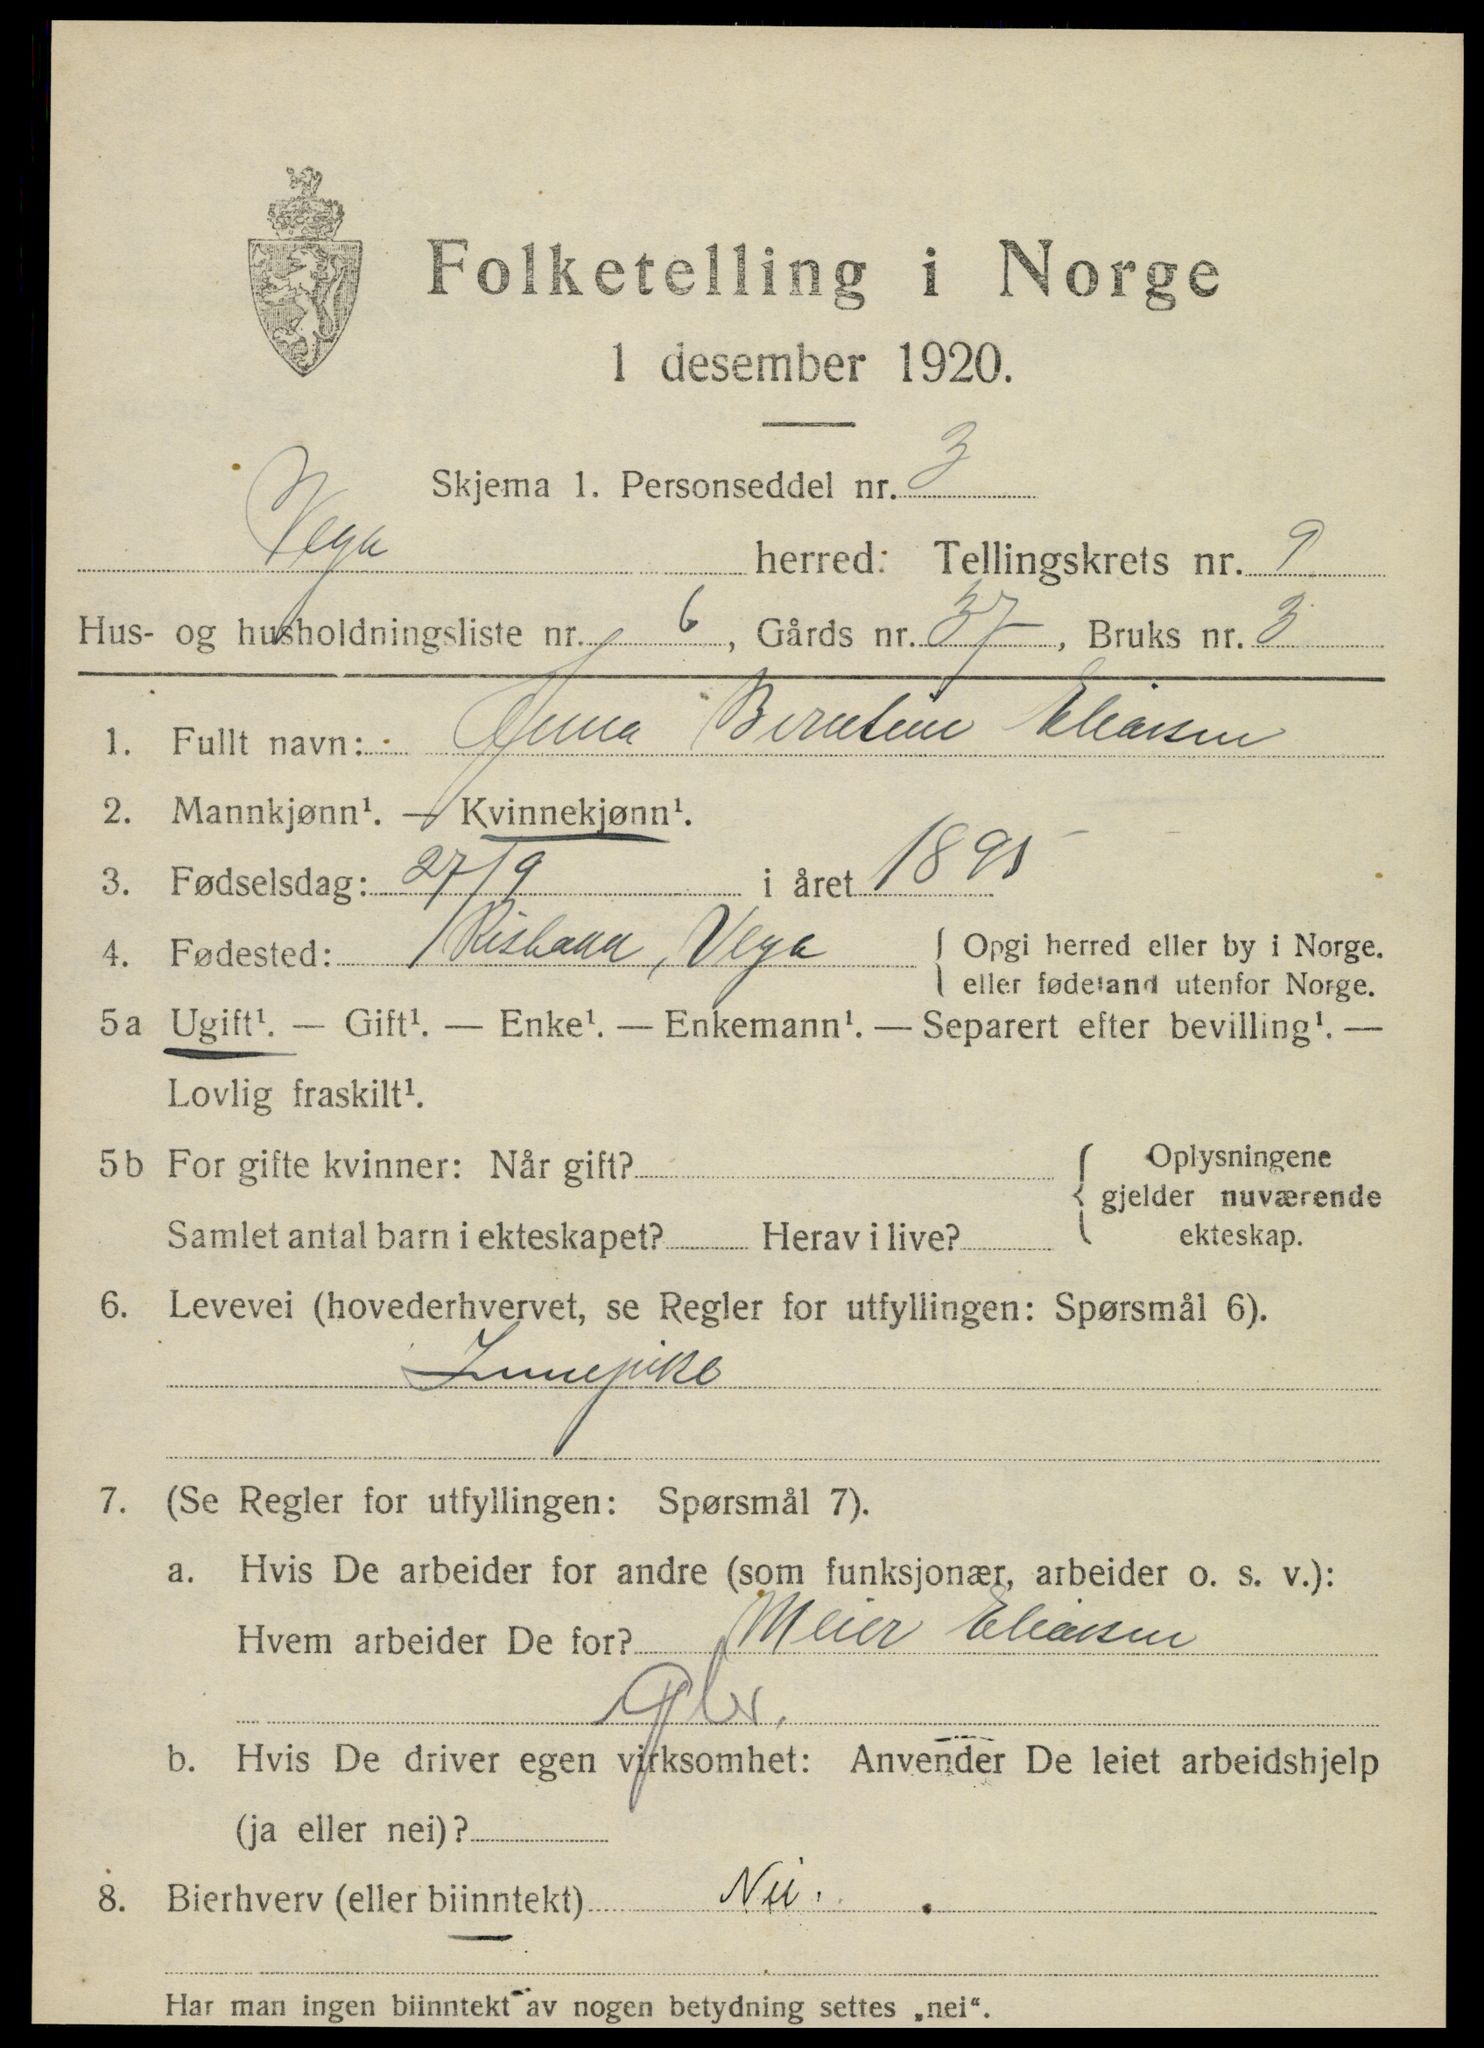 Folketelling i Norge
1 desember 1920.
Skjema 1. Personseddel nr. 3
Vega herred: Tellingskrets nr. 9
Hus- og husholdningsliste nr. 6, Gårds nr. 37, Bruks nr. 3
1. Fullt navn: Anna Berntine Eliassen
2. Mannkjønn¹. — Kvinnekjønn¹.
3. Fødselsdag: 27/9 i året 1895
4. Fødested: Vega { Opgi herred eller by i Norge.
eller fødeland utenfor Norge.
5a Ugift¹. — Gift¹. — Enke¹. — Enkemann¹. — Separert efter bevilling¹. —
Lovlig fraskilt¹.
5b For gifte kvinner: Når gift? { Oplysningene
gjelder nuværende
Samlet antal barn i ekteskapet? Herav i live? ekteskap.
6. Levevei (hovederhvervet, se Regler for utfyllingen: Spørsmål 6).
Innepike
7. (Se Regler for utfyllingen: Spørsmål 7).
a. Hvis De arbeider for andre (som funksjonær, arbeider o. s. v.):
Hvem arbeider De for? Meier Eliassen
b. Hvis De driver egen virksomhet: Anvender De leiet arbeidshjelp
(ja eller nei)?
8. Bierhverv (eller biinntekt) Nei.
Har man ingen biinntekt av nogen betydning settes „nei“.